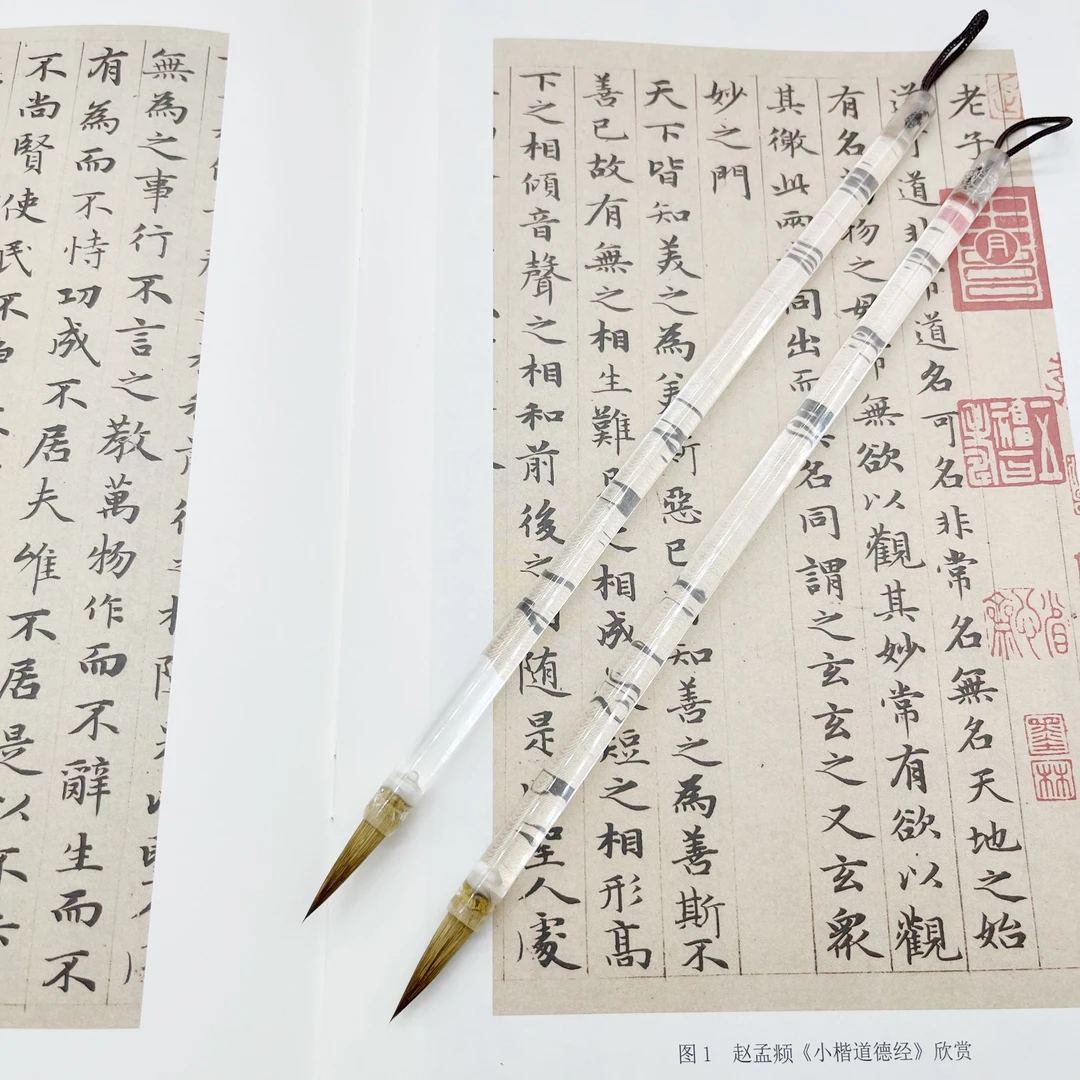 老子
道非常道名可名非常名無名天地之始
有名物之母無欲以觀其妙常有欲以觀
其徼此兩同出而名同謂之玄玄之又玄衆
妙之門
天下皆知美之為美斯惡已知善之為善斯不
善已故有無之相生難之相成短之相形高
下之相傾音聲之相和前後之随是聖人處
無為之事行不言之教萬物作而不辭生而不
有為而不恃功成不居夫惟不居是以不
不尚賢使民不
墨林
图1 赵孟𫖯《小楷道德经》欣赏